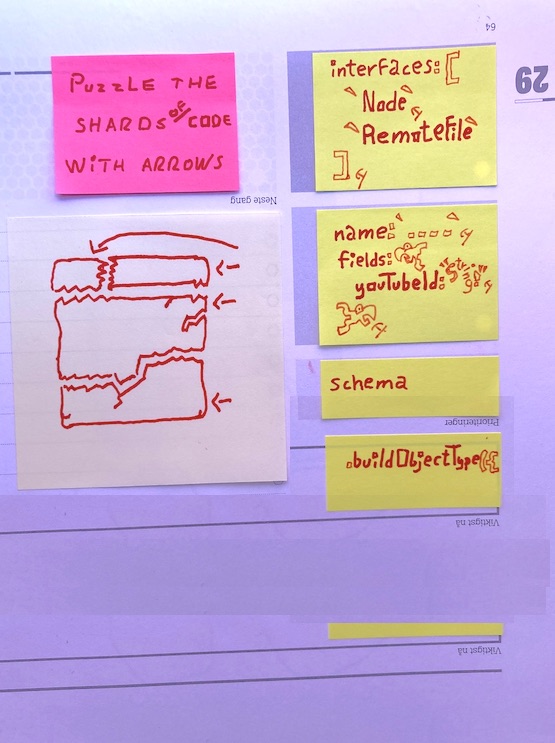 64
29
PUZZLE THE
SHARDS OF CODE
WITH ARROWS
Neste gang
interfaces: [
`Node`,
`RemoteFile`
],
name: `----`,
fields: {
youTubeId: "String!",
},
schema
Prioriteringer
.buildObjectType({
Viktigst nå
Viktigst nå